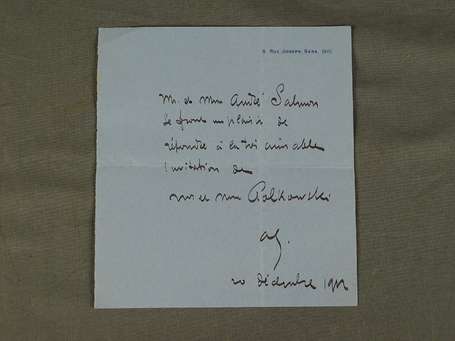 6 RUE JOSEPH BARA (VIE)
M. et Mme André Salmon
se font un plaisir de
répondre à la très aimable
invitation de
M. et Mme Polkowski
AS.
20 décembre